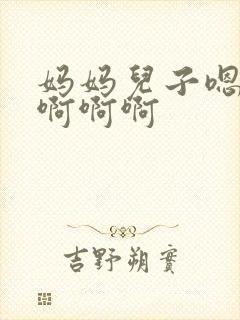 妈妈兒子嗯
啊啊啊
吉野朔實